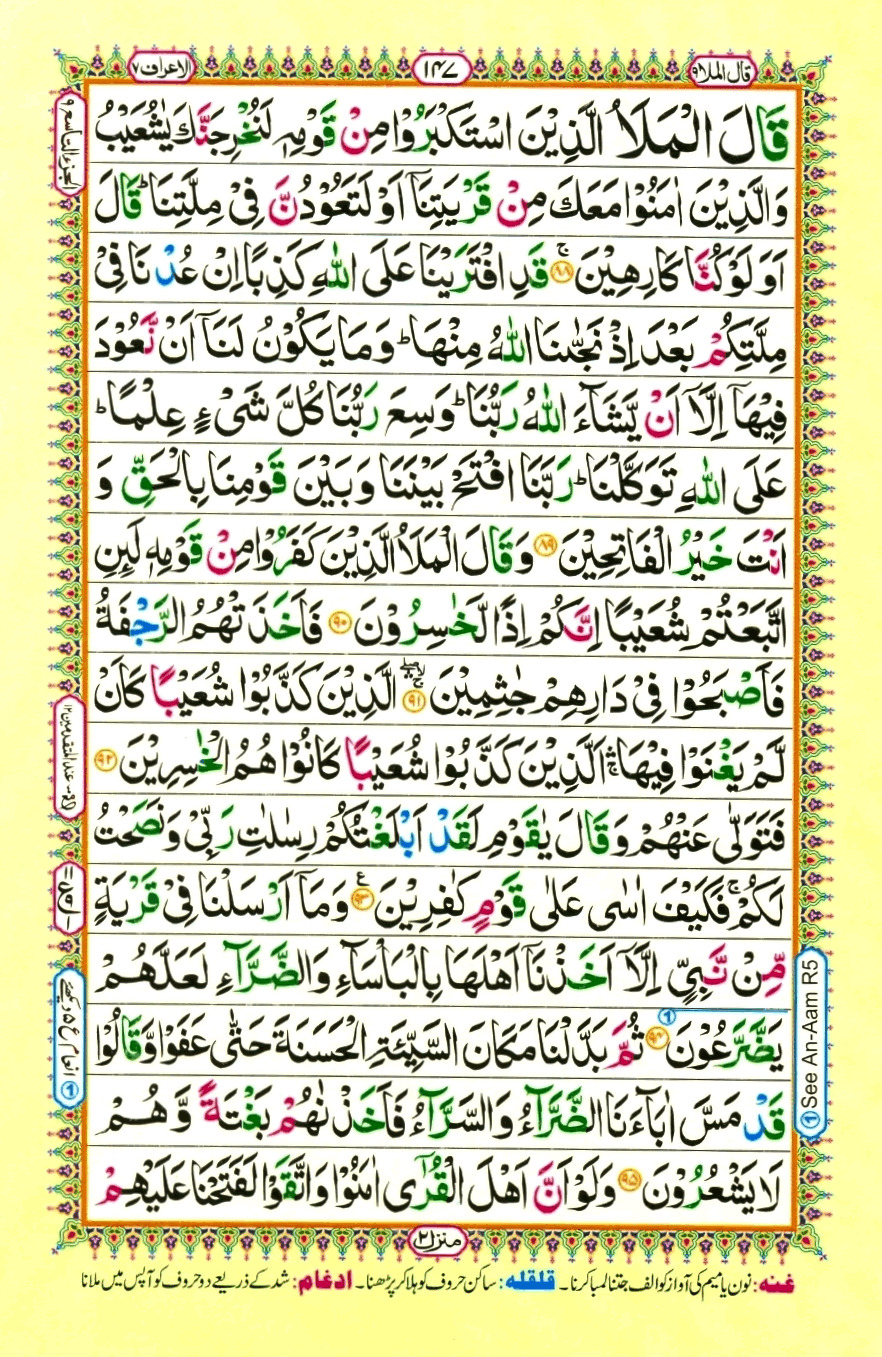 قال الملا ۹
۱۴۷
الاعراف ۷
قَالَ الْمَلَاُ الَّذِیْنَ اسْتَكْبَرُوْا مِنْ قَوْمِهٖ لَنُخْرِجَنَّكَ یٰشُعَیْبُ
وَالَّذِیْنَ اٰمَنُوْا مَعَكَ مِنْ قَرْیَتِنَاۤ اَوْ لَتَعُوْدُنَّ فِیْ مِلَّتِنَا ؕ قَالَ
اَوَلَوْ كُنَّا كَارِهِیْنَ ۚ ﴿۸۸﴾ قَدِ افْتَرَیْنَا عَلَی اللّٰهِ كَذِبًا اِنْ عُدْنَا فِیْ
مِلَّتِكُمْ بَعْدَ اِذْ نَجّٰىنَا اللّٰهُ مِنْهَا ؕ وَمَا یَكُوْنُ لَنَاۤ اَنْ نَّعُوْدَ
فِیْهَاۤ اِلَّاۤ اَنْ یَّشَآءَ اللّٰهُ رَبُّنَا ؕ وَسِعَ رَبُّنَا كُلَّ شَیْءٍ عِلْمًا ؕ
عَلَی اللّٰهِ تَوَكَّلْنَا ؕ رَبَّنَا افْتَحْ بَیْنَنَا وَبَیْنَ قَوْمِنَا بِالْحَقِّ وَ
اَنْتَ خَیْرُ الْفَاتِحِیْنَ ﴿۸۹﴾ وَقَالَ الْمَلَاُ الَّذِیْنَ كَفَرُوْا مِنْ قَوْمِهٖ لَىِٕنِ
اتَّبَعْتُمْ شُعَیْبًا اِنَّكُمْ اِذًا لَّخٰسِرُوْنَ ﴿۹۰﴾ فَاَخَذَتْهُمُ الرَّجْفَةُ
فَاَصْبَحُوْا فِیْ دَارِهِمْ جٰثِمِیْنَ ﴿۹۱﴾ الَّذِیْنَ كَذَّبُوْا شُعَیْبًا كَاَنْ
لَّمْ یَغْنَوْا فِیْهَا ۛۚ اَلَّذِیْنَ كَذَّبُوْا شُعَیْبًا كَانُوْا هُمُ الْخٰسِرِیْنَ ﴿۹۲﴾
فَتَوَلّٰی عَنْهُمْ وَقَالَ یٰقَوْمِ لَقَدْ اَبْلَغْتُكُمْ رِسٰلٰتِ رَبِّیْ وَنَصَحْتُ
لَكُمْ ۚ فَكَیْفَ اٰسٰی عَلٰی قَوْمٍ كٰفِرِیْنَ ﴿۹۳﴾ وَمَاۤ اَرْسَلْنَا فِیْ قَرْیَةٍ
مِّنْ نَّبِیٍّ اِلَّاۤ اَخَذْنَاۤ اَهْلَهَا بِالْبَاْسَآءِ وَالضَّرَّآءِ لَعَلَّهُمْ
یَضَّرَّعُوْنَ ﴿۹۴﴾ ① ثُمَّ بَدَّلْنَا مَكَانَ السَّیِّئَةِ الْحَسَنَةَ حَتّٰی عَفَوْا وَّقَالُوْا
قَدْ مَسَّ اٰبَآءَنَا الضَّرَّآءُ وَالسَّرَّآءُ فَاَخَذْنٰهُمْ بَغْتَةً وَّهُمْ
لَا یَشْعُرُوْنَ ﴿۹۵﴾ وَلَوْ اَنَّ اَهْلَ الْقُرٰۤی اٰمَنُوْا وَاتَّقَوْا لَفَتَحْنَا عَلَیْهِمْ
منزل ۲
غنه: نون یا میم کی آواز کو الف جتنا لمبا کرنا۔ قلقله: ساکن حروف کو ہلا کر پڑھنا۔ ادغام: شد کے ذریعے دو حروف کو آپس میں ملانا
① See An-Aam R5
الجزء التاسع ۹
① انعام ع ۵ دیکھئے